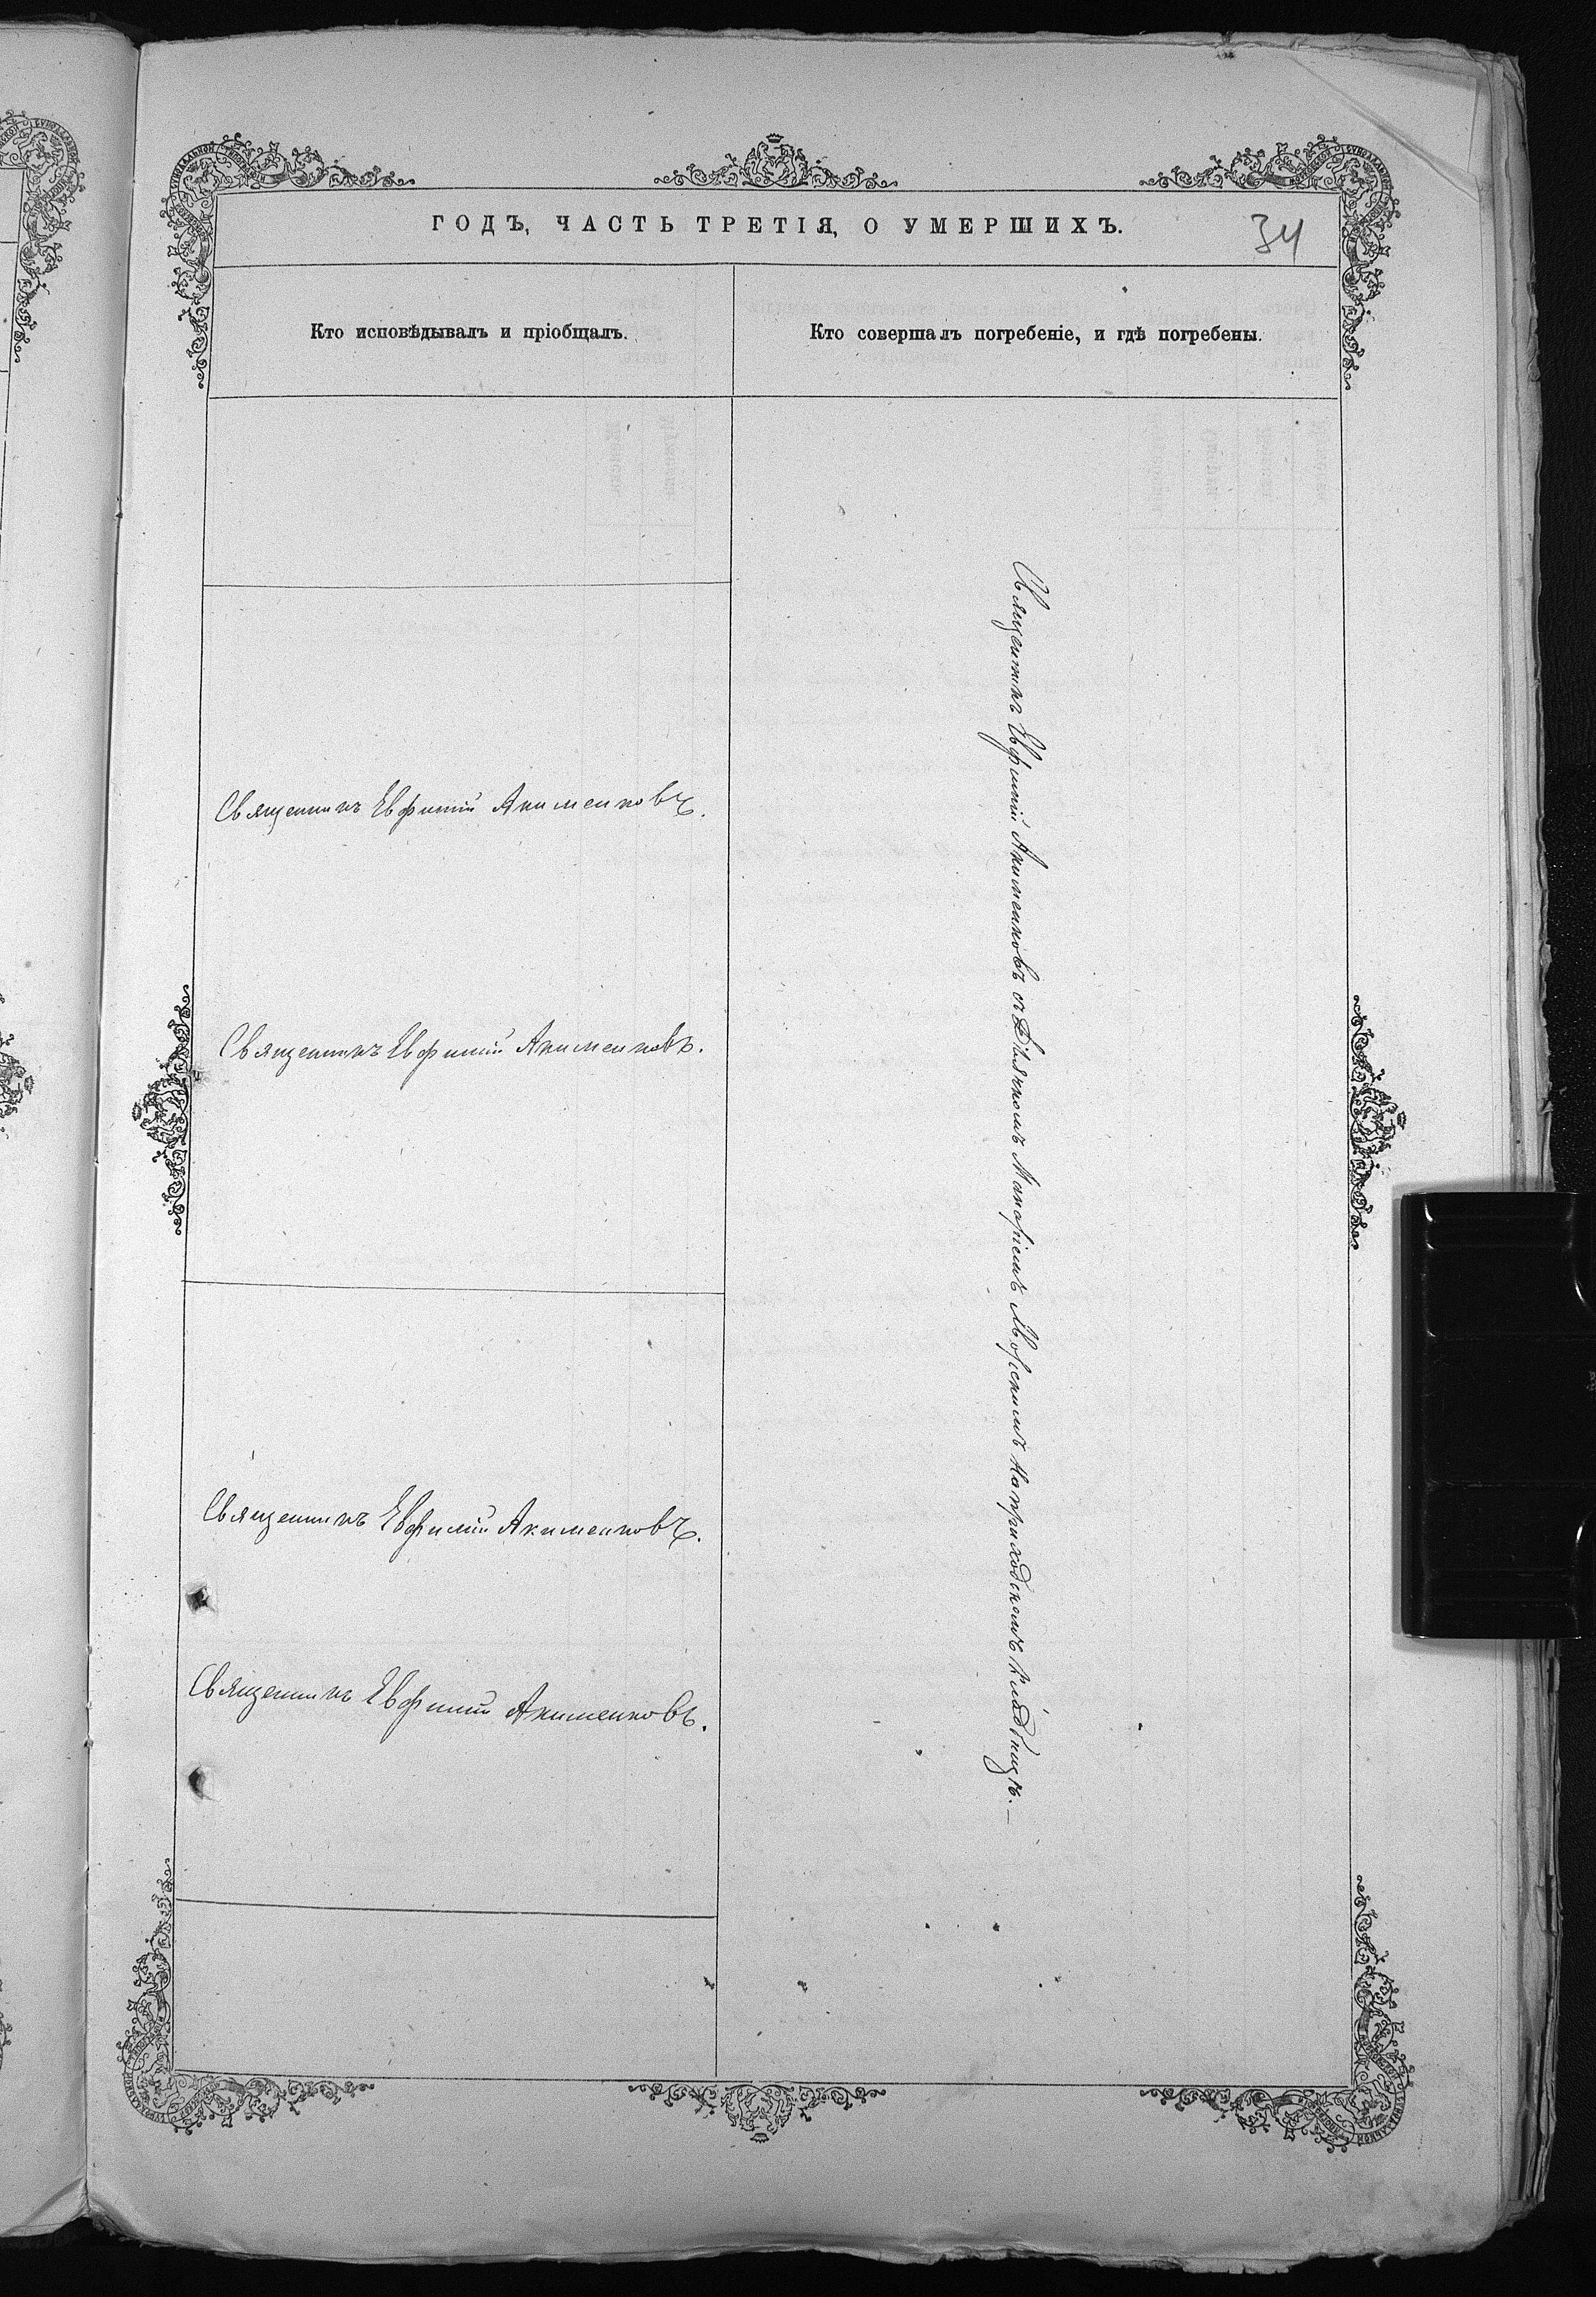 ГОДЪ, ЧАСТЬ ТРЕТІЯ, О УМЕРШИХЪ.
34
Кто исповѣдывалъ и пріобщалъ.
Кто совершалъ погребеніе, и гдѣ погребены.
Священникъ Евфимій Акименковъ.
Священникъ Евфимій Акименковъ.
Священникъ Евфимій Акименковъ.
Священникъ Евфимій Акименковъ.
Священникъ Евфимій Акименковъ съ Дьячкомъ Макаріемъ на приходскомъ кладбищѣ.—